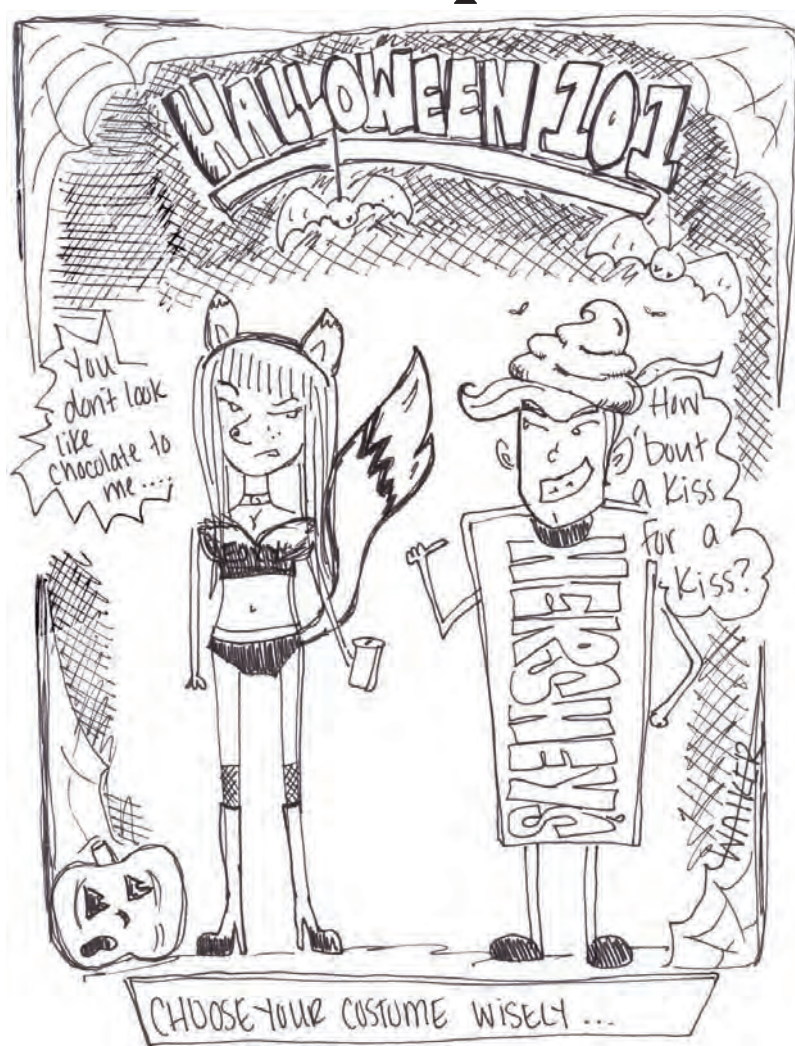 HALLOWEEN 101
You
don't look
like
chocolate to
me....
How
'bout
a kiss
for a
kiss?
HERSHEY'S
WALKER
CHOOSE YOUR COSTUME WISELY ...